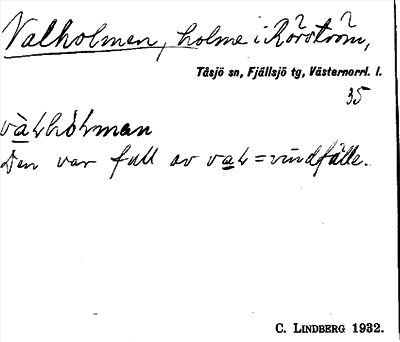 Valholmen, holme i Rörström,
Tåsjö sn, Fjällsjö tg, Västernorrl. l.
35
vàLhòLman
Den var full av vaL = vindfälle.
C. LINDBERG 1932.